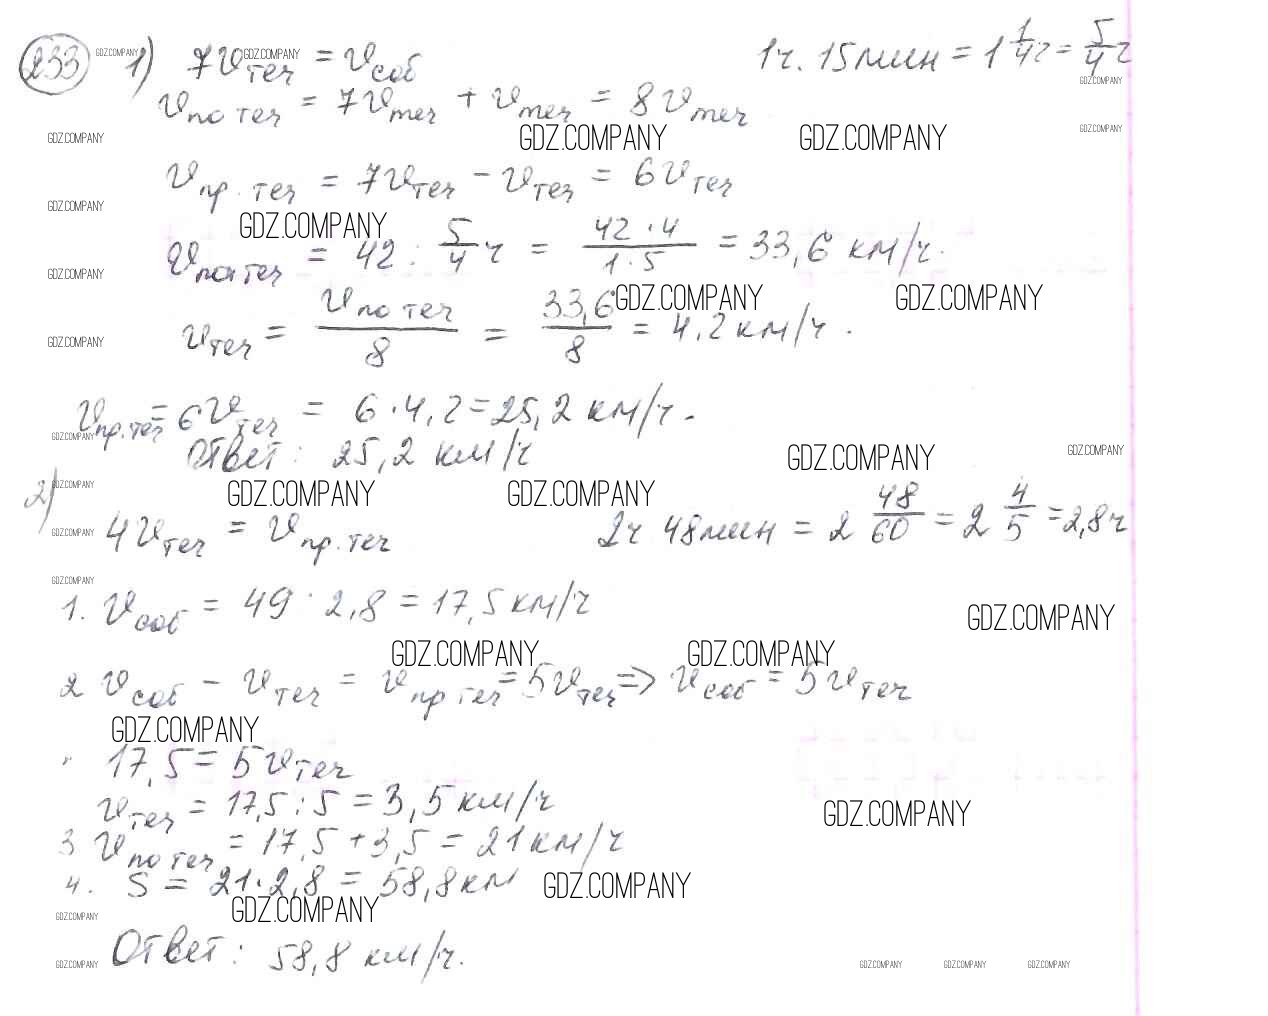 233 1) 7v теч = v соб 1ч. 15мин = 1 1/4 ч = 5/4 ч
v по теч = 7v теч + v теч = 8v теч
GDZ.COMPANY
v пр. теч = 7v теч - v теч = 6v теч
v по теч = 42 : 5/4 ч = 42·4/1·5 = 33,6 км/ч.
v теч = v по теч/8 = 33,6/8 = 4,2 км/ч.
v пр. теч = 6v теч = 6·4,2 = 25,2 км/ч.
Ответ: 25,2 км/ч
2) 4v теч = v пр. теч 2ч 48мин = 2 48/60 = 2 4/5 = 2,8ч
1. v соб = 49 : 2,8 = 17,5 км/ч
2 v соб - v теч = v пр теч = 5v теч => v соб = 5v теч
17,5 = 5v теч
v теч = 17,5 : 5 = 3,5 км/ч
3 v по теч = 17,5 + 3,5 = 21 км/ч
4. S = 21·2,8 = 58,8 км
Ответ: 58,8 км/ч.